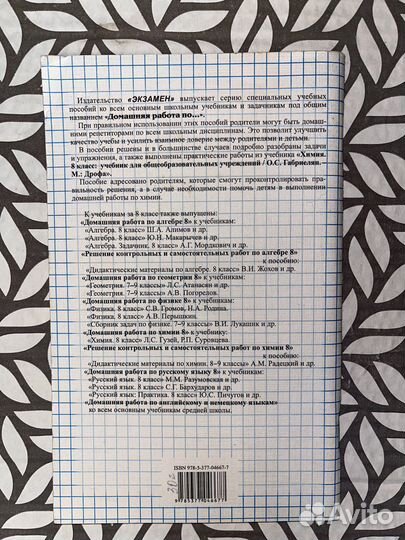 Издательство «ЭКЗАМЕН» выпускает серию специальных учебных
пособий ко всем основным школьным учебникам и задачникам под общим
названием «Домашняя работа по...».
При правильном использовании этих пособий родители могут быть домаш-
ними репетиторами по всем школьным дисциплинам. Это позволит улучшить
качество учебы и усилить взаимное доверие между родителями и детьми.
В пособии решены и в большинстве случаев подробно разобраны задачи
и упражнения, а также выполнены практические работы из учебника «Химия.
8 класс: учебник для общеобразовательных учреждений / О.С. Габриелян.
М.: Дрофа».
Пособие адресовано родителям, которые смогут проконтролировать пра-
вильность решения, а в случае необходимости помочь детям в выполнении
домашней работы по химии.
К учебникам за 8 класс также выпущены:
«Домашняя работа по алгебре 8» к учебникам:
«Алгебра. 8 класс» Ш.А. Алимов и др.
«Алгебра. 8 класс» Ю.Н. Макарычев и др.
«Алгебра. Задачник. 8 класс» А.Г. Мордкович и др.
«Решение контрольных и самостоятельных работ по алгебре 8»
к пособию:
«Дидактические материалы по алгебре. 8 класс» В.И. Жохов и др.
«Домашняя работа по геометрии 8» к учебникам:
«Геометрия. 7–9 классы» Л.С. Атанасян и др.
«Геометрия. 7–9 классы» А.В. Погорелов.
«Домашняя работа по физике 8» к учебникам:
«Физика. 8 класс» С.В. Громов, Н.А. Родина.
«Физика. 8 класс» А.В. Перышкин.
«Сборник задач по физике. 7–9 классы» В.И. Лукашик и др.
«Домашняя работа по химии 8» к учебникам:
«Химия. 8 класс» Л.С. Гузей, Р.П. Суровцева.
«Решение контрольных и самостоятельных работ по химии 8»
к пособию:
«Дидактические материалы по химии. 8–9 классы» А.М. Радецкий и др.
«Домашняя работа по русскому языку 8» к учебникам:
«Русский язык. 8 класс» М.М. Разумовская и др.
«Русский язык. 8 класс» С.Г. Бархударов и др.
«Русский язык: Практика. 8 класс» Ю.С. Пичугов и др.
«Домашняя работа по английскому и немецкому языкам»
ко всем основным учебникам средней школы.
ISBN 978-5-377-04667-7
9 785377 046677
Avito